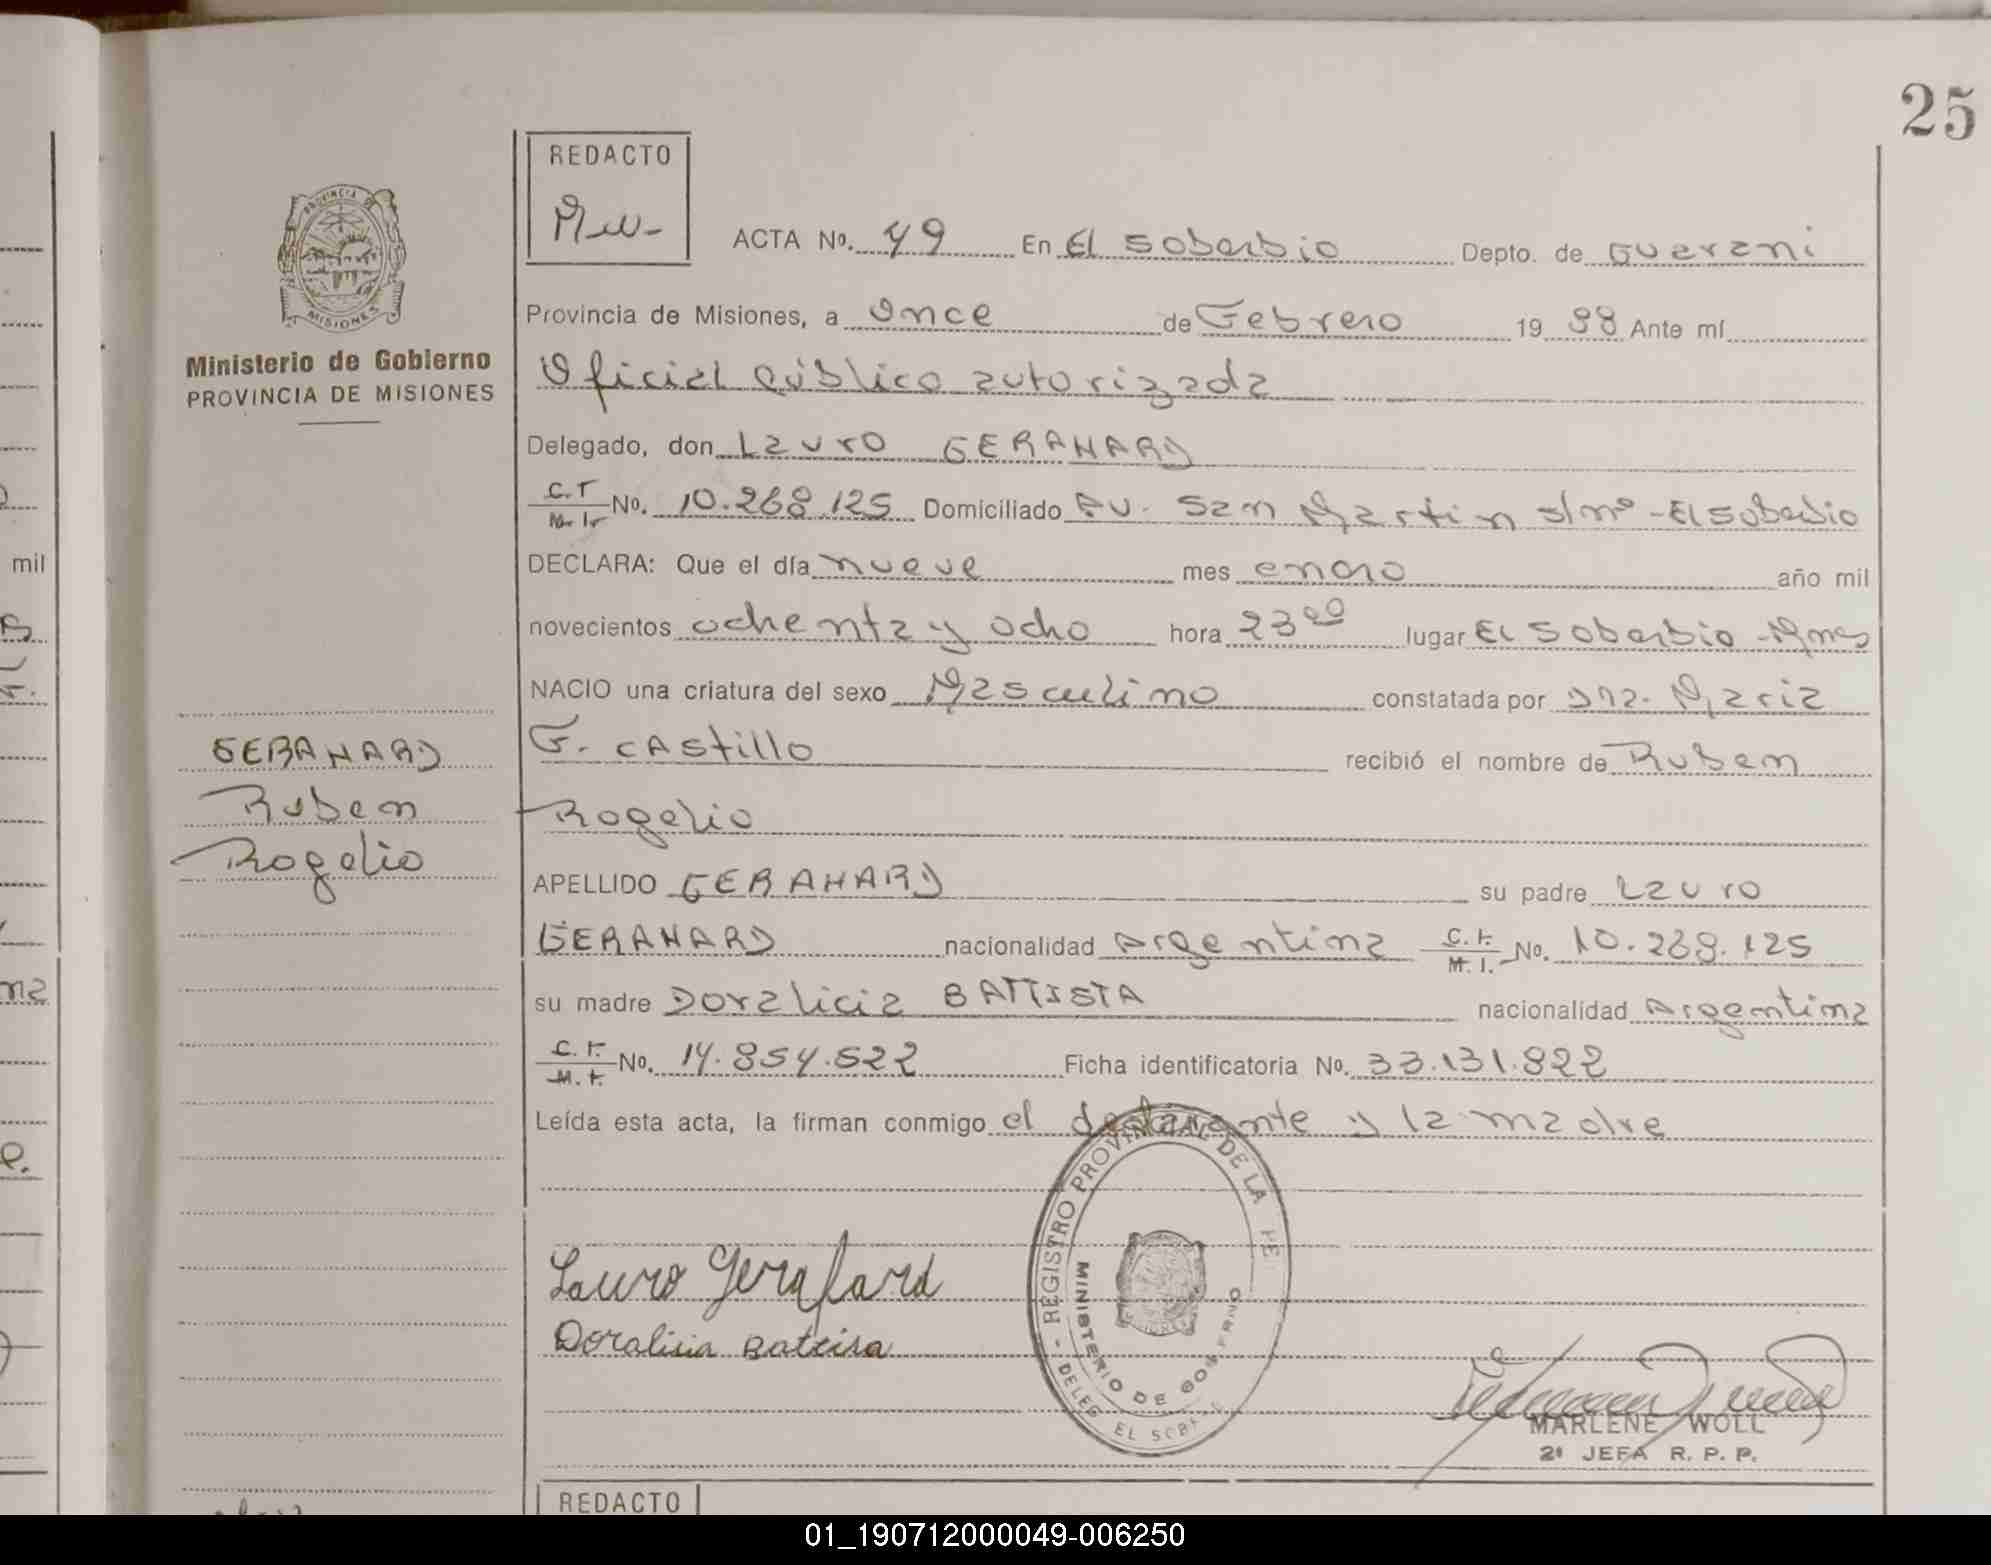 25
REDACTO
PROVINCIA DE
MISIONES
Ministerio de Gobierno
PROVINCIA DE MISIONES
ACTA No. 49 En El Soberbio Depto. de Guarani
Provincia de Misiones, a Once de Febrero 19 88 Ante mí
Oficial Público autorizada
Delegado, don Lauro GERAHARD
C.I No. 10.268.125 Domiciliado Av. San Martin s/nº - El Soberbio
M.I.
mil
DECLARA: Que el día nueve mes enero año mil
novecientos ochenta y ocho hora 23⁰⁰ lugar El Soberbio - Mnes
NACIO una criatura del sexo Masculino constatada por Dra. Maria
G. CAStillo recibió el nombre de Ruben
Rogelio
GERAHARD
Ruben
Rogelio
APELLIDO GERAHARD su padre Lauro
GERAHARD nacionalidad Argentina C.I. No. 10.268.125
M.I.
su madre Doralicia BATTISTA nacionalidad Argentina
C.I. No. 14.854.522 Ficha identificatoria No. 33.131.822
M.I.
Leída esta acta, la firman conmigo el declarante y la madre
REGISTRO PROVINCIAL DE LA
MINISTERIO DE GOBIERNO
DELEG EL SOBE
Lauro Gerahard
Doralisia Bateisa
MARLENE WOLL
2ª JEFA R. P. P.
REDACTO
01_190712000049-006250